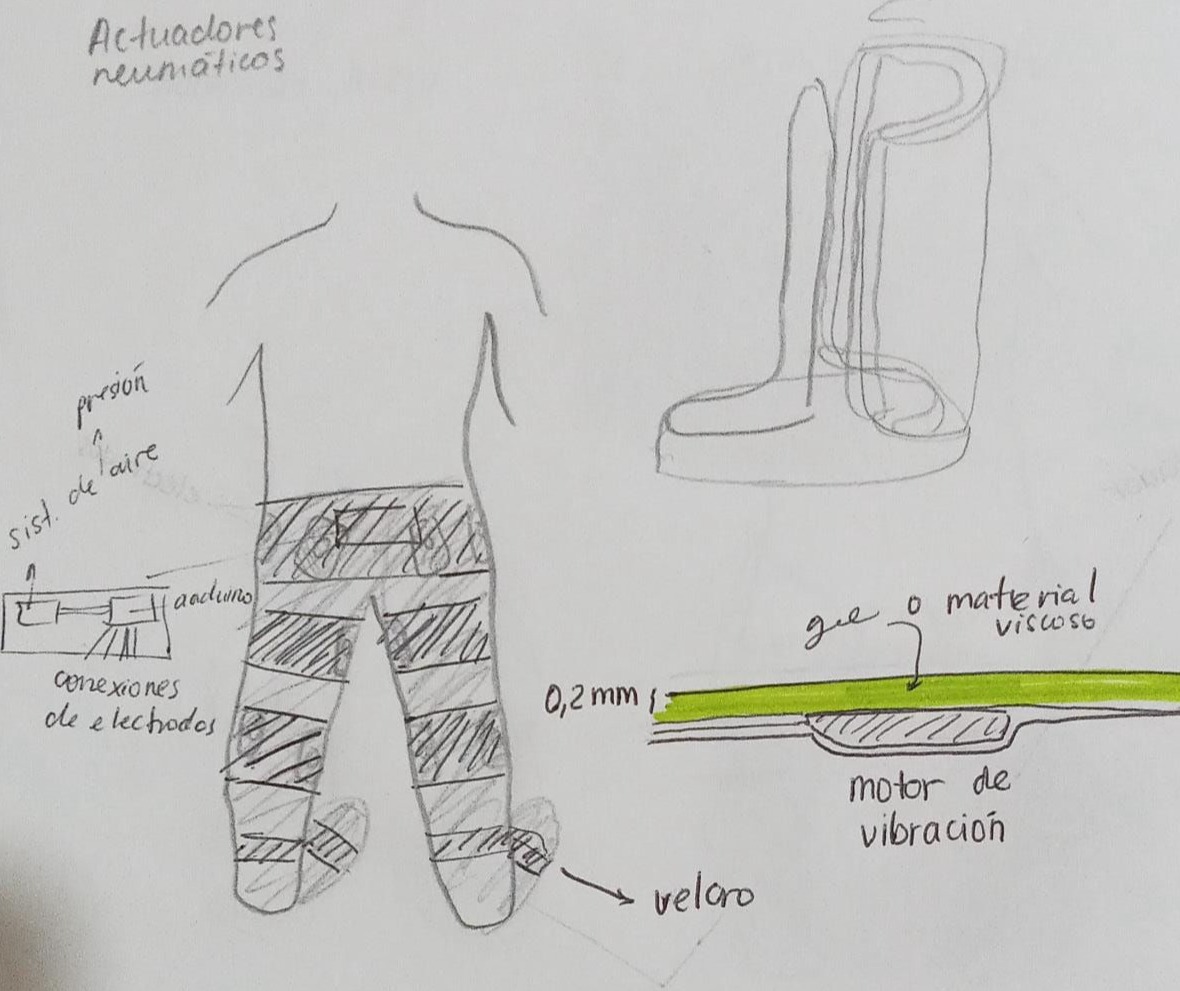 Actuadores
neumáticos
presión
sist. de aire
arduino
conexiones
de electrodos
gel o material
viscoso
0,2mm
motor de
vibración
velcro